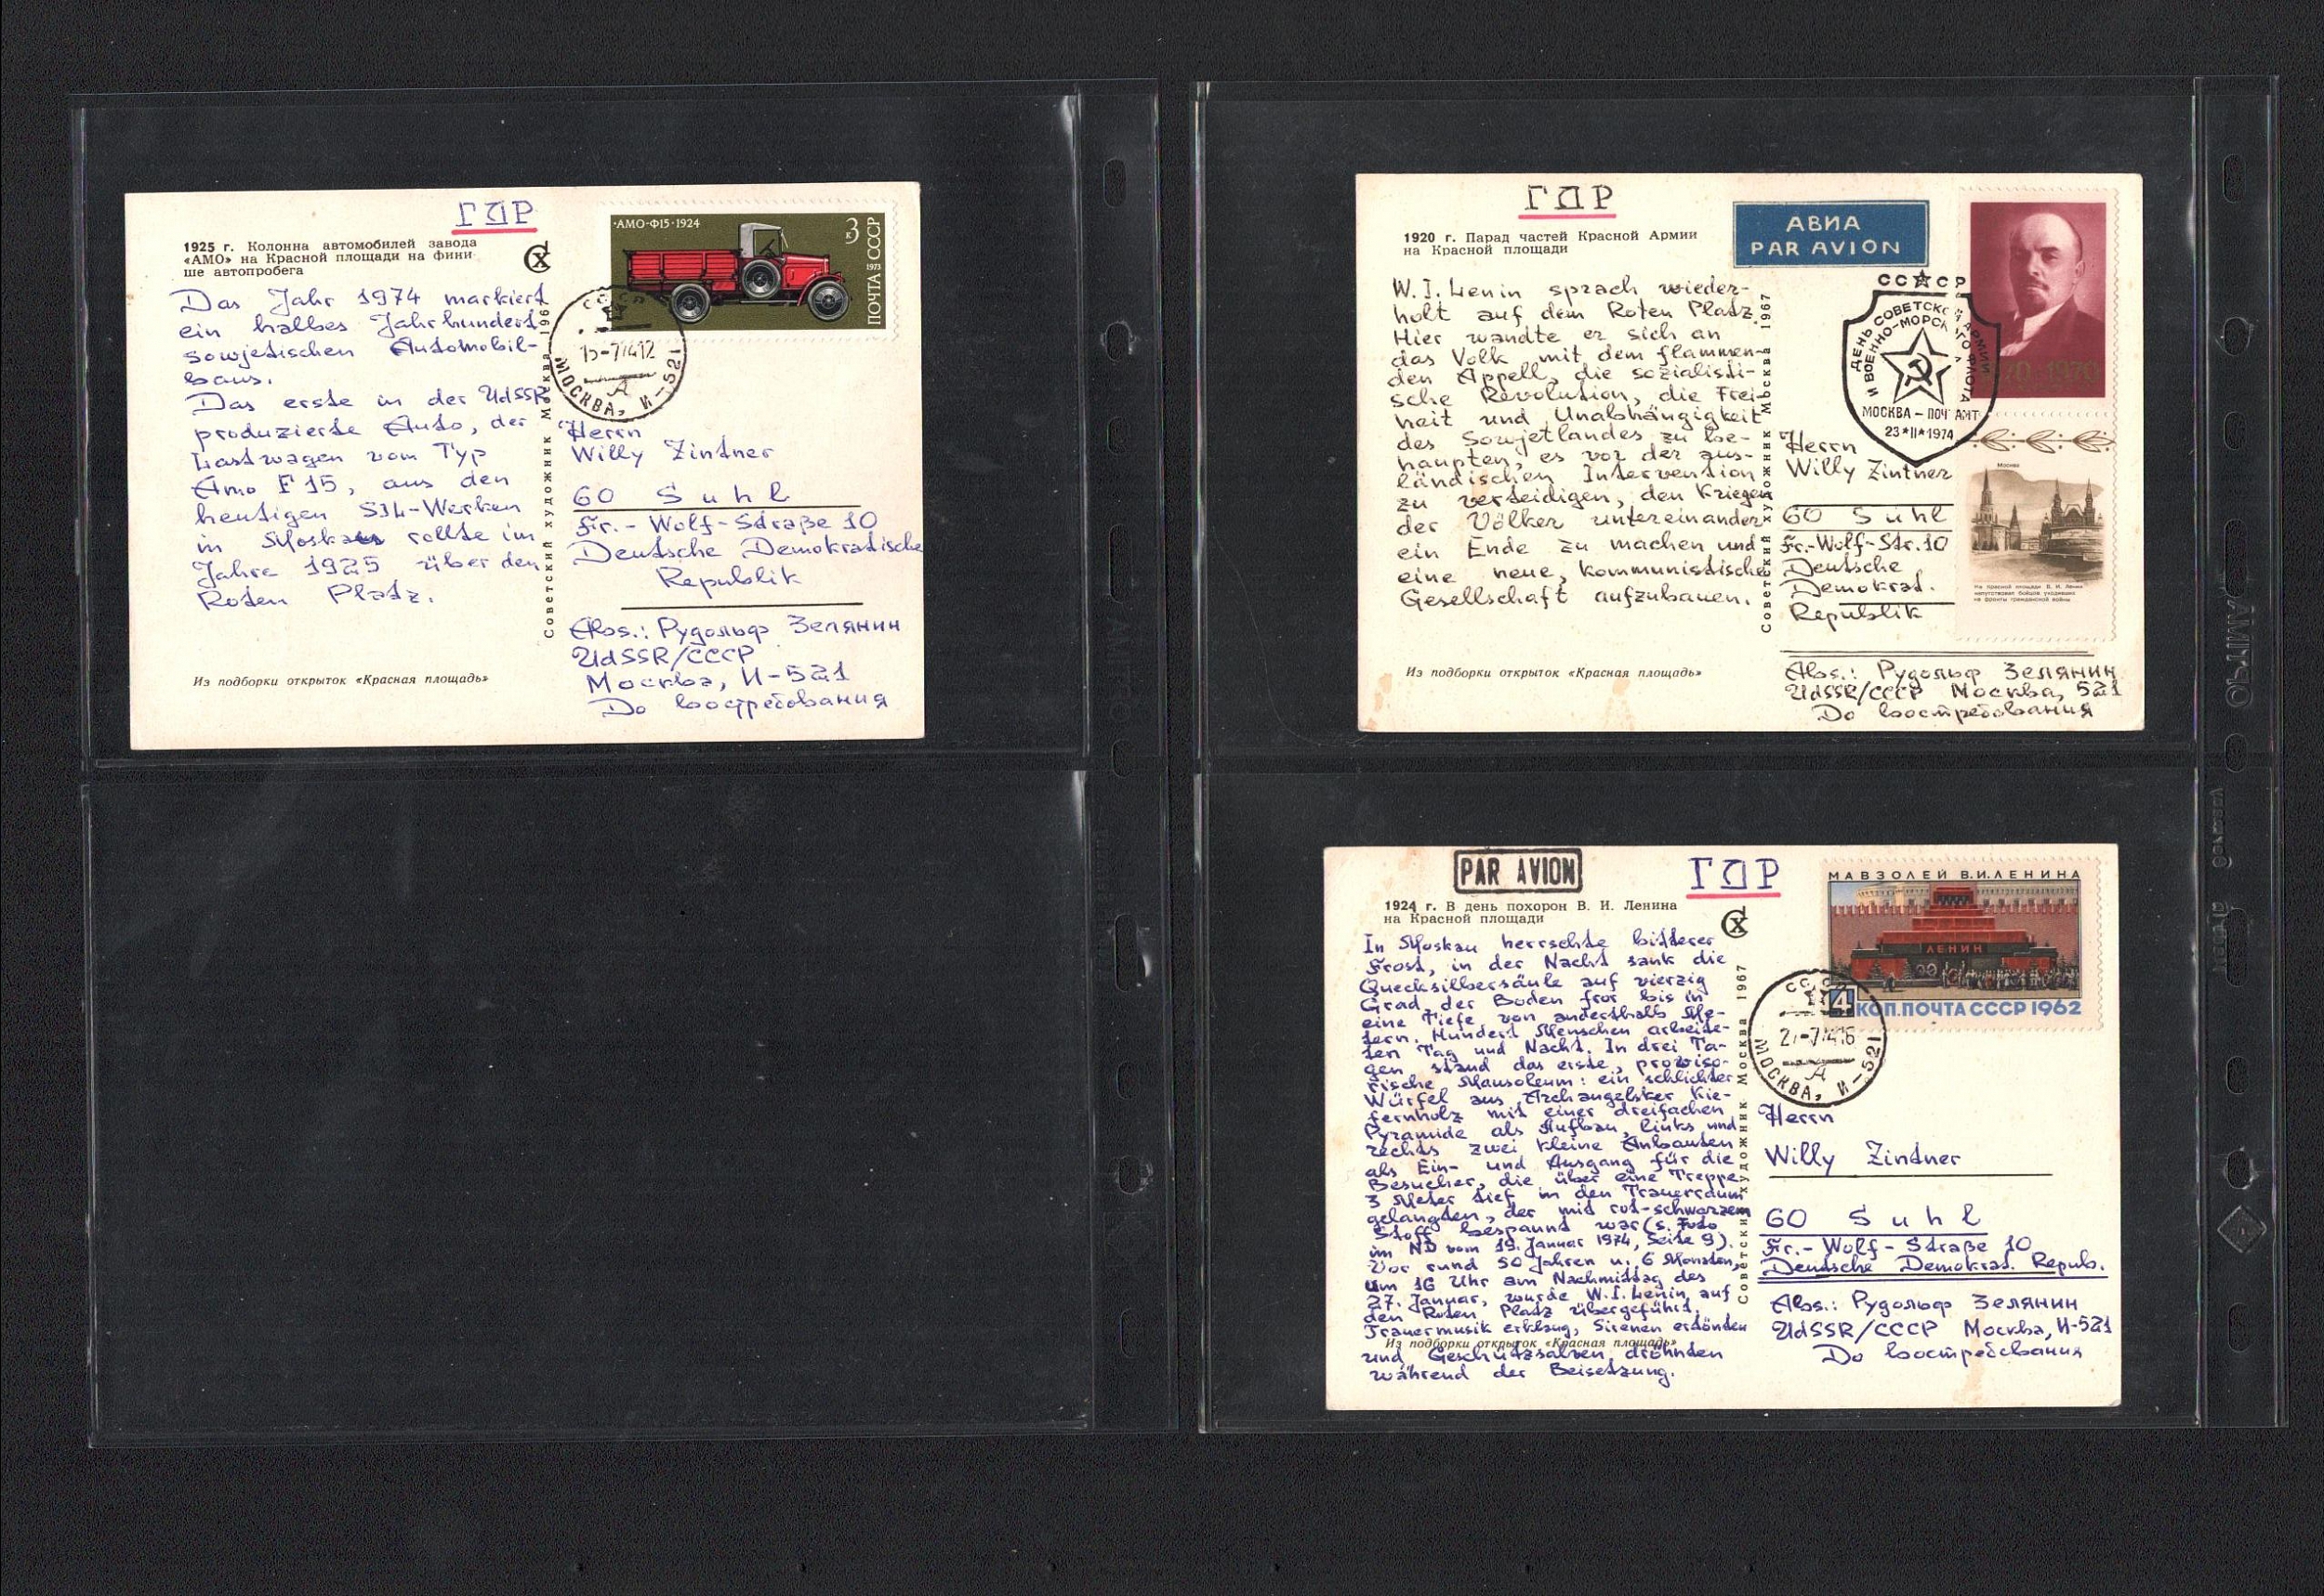 ГДР
1925 г. Колонна автомобилей завода
«АМО» на Красной площади на фини
ше автопробега
Das Jahr 1974 markiert
ein halbes Jahrhundert
sowjetischen Automobil-
baus.
Das erste in der UdSSR
produzierte Auto, der
Lastwagen vom Typ
Amo F 15, aus den
heutigen SIL-Werken
in Moskau rollte im
Jahre 1925 über den
Roten Platz.
Из подборки открыток «Красная площадь»
Советский художник Москва 1967
АМО-Ф15·1924
3 к
ПОЧТА СССР
1973
СССР
15-7 74 12
А
МОСКВА, И-521
Herrn
Willy Zintner
60 Suhl
Fr.-Wolf-Straße 10
Deutsche Demokratische
Republik
Abs.: Рудольф Зелянин
UdSSR/СССР
Москва, И-521
До востребования
ГДР
АВИА
PAR AVION
1920 г. Парад частей Красной Армии
на Красной площади
W.I. Lenin sprach wieder-
holt auf dem Roten Platz.
Hier wandte er sich an
das Volk mit dem flammen-
den Appell, die sozialisti-
sche Revolution, die Frei-
heit und Unabhängigkeit
des Sowjetlandes zu be-
haupten, es vor der aus-
ländischen Intervention
zu verteidigen, den Kriegen
der Völker untereinander
ein Ende zu machen und
eine neue, kommunistische
Gesellschaft aufzubauen.
Из подборки открыток «Красная площадь»
Советский художник Москва 1967
СССР
ДЕНЬ СОВЕТСКОЙ АРМИИ
И ВОЕННО-МОРСКОГО ФЛОТА
МОСКВА – ПОЧТАМТ
23*II*1974
1870 1970
Москва
На Красной площади В. И. Ленин
напутствовал бойцов уходивших
на фронты гражданской войны
Herrn
Willy Zintner
60 Suhl
Fr.-Wolf-Str. 10
Deutsche
Demokrat.
Republik
Abs.: Рудольф Зелянин
UdSSR/СССР Москва, 521
До востребования
PAR AVION
ГДР
1924 г. В день похорон В. И. Ленина
на Красной площади
In Moskau herrschte bitterer
Frost, in der Nacht sank die
Quecksilbersäule auf vierzig
Grad, der Boden fror bis in
eine Tiefe von anderthalb Me-
tern. Hundert Menschen arbeite-
ten Tag und Nacht. In drei Ta-
gen stand das erste, proviso-
rische Mausoleum: ein schlichter
Würfel aus Archangelsker Kie-
fernholz mit einer dreifachen
Pyramide als Aufbau, links und
rechts zwei kleine Anbauten
als Ein- und Ausgang für die
Besucher, die über eine Treppe
3 Meter tief in den Trauerraum
gelangten, der mit rot-schwarzem
Stoff bespannt war (s. Foto
im ND vom 19. Januar 1974, Seite 9).
Vor rund 50 Jahren u. 6 Monaten,
um 16 Uhr am Nachmittag des
27. Januar, wurde W.I. Lenin auf
den Roten Platz übergeführt.
Trauermusik erklang, Sirenen ertönten
Из подборки открыток «Красная площадь»
und Geschützsalven dröhnten
während der Beisetzung.
Советский художник Москва 1967
МАВЗОЛЕЙ В.И.ЛЕНИНА
ЛЕНИН
4 КОП. ПОЧТА СССР 1962
СССР
27-7 74 16
А
МОСКВА, И-521
Herrn
Willy Zintner
60 Suhl
Fr.-Wolf-Straße 10
Deutsche Demokrat. Repub.
Abs.: Рудольф Зелянин
UdSSR/СССР Москва, И-521
До востребования